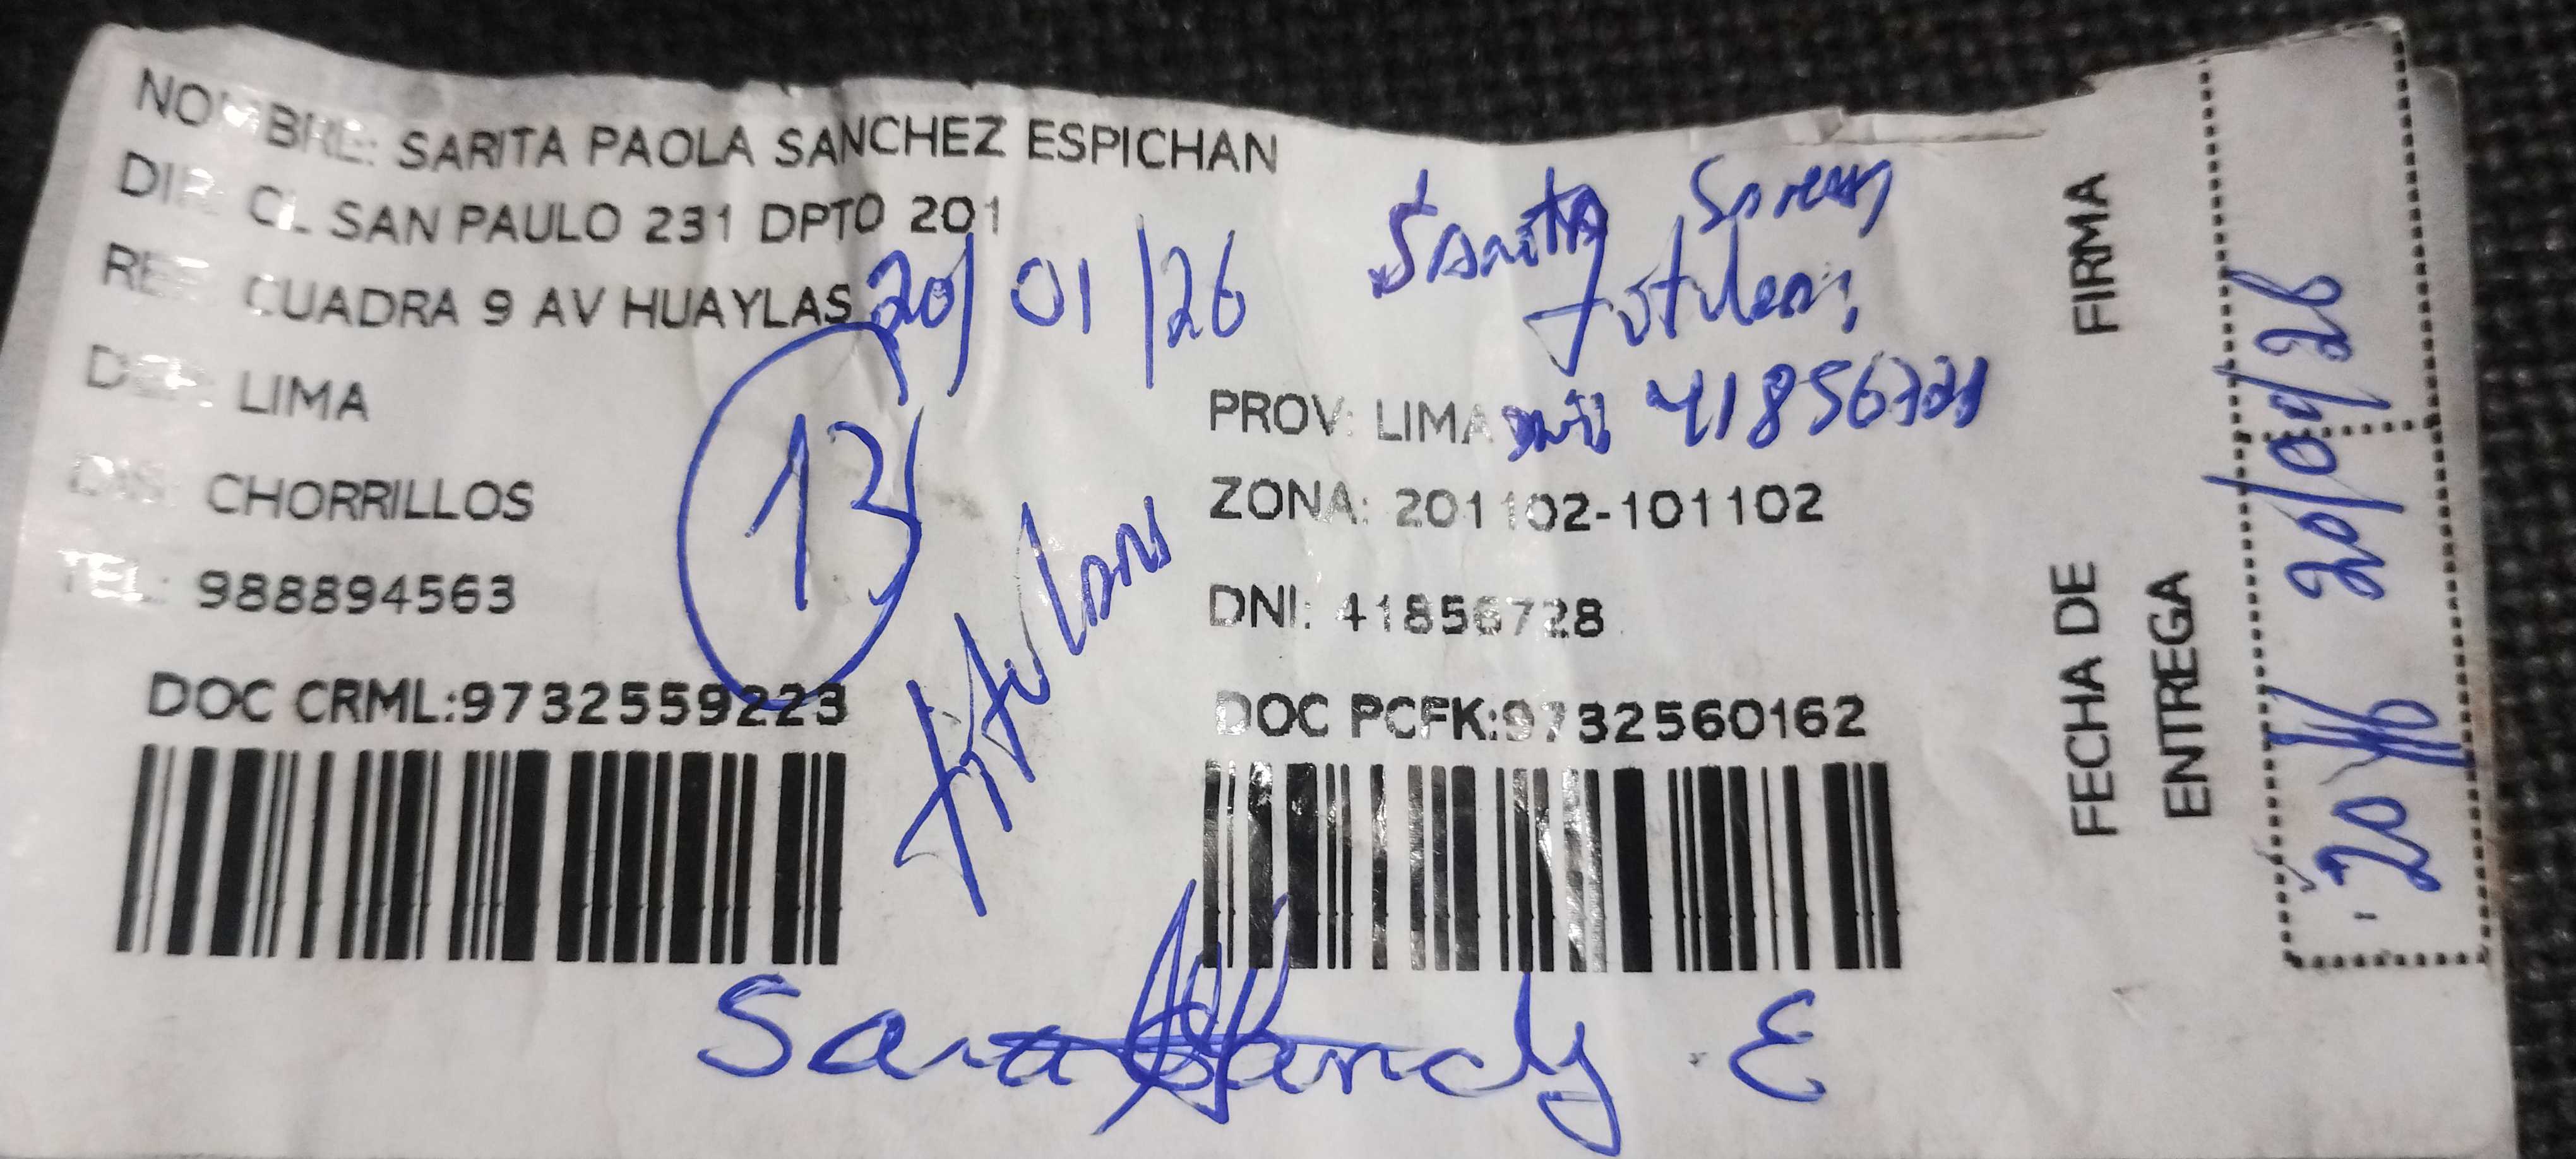 NOMBRE: SARITA PAOLA SANCHEZ ESPICHAN
DIR: CL SAN PAULO 231 DPTO 201
REF: CUADRA 9 AV HUAYLAS 20/ 01 /26
Sarita
DEP: LIMA
13
PROV: LIMA
DIS: CHORRILLOS
ZONA: 201102-101102
TEL: 988894563
DNI: 41856728
titular
DOC CRML:9732559223
DOC PCFK:9732560162
Sara E
FIRMA
FECHA DE
ENTREGA
20